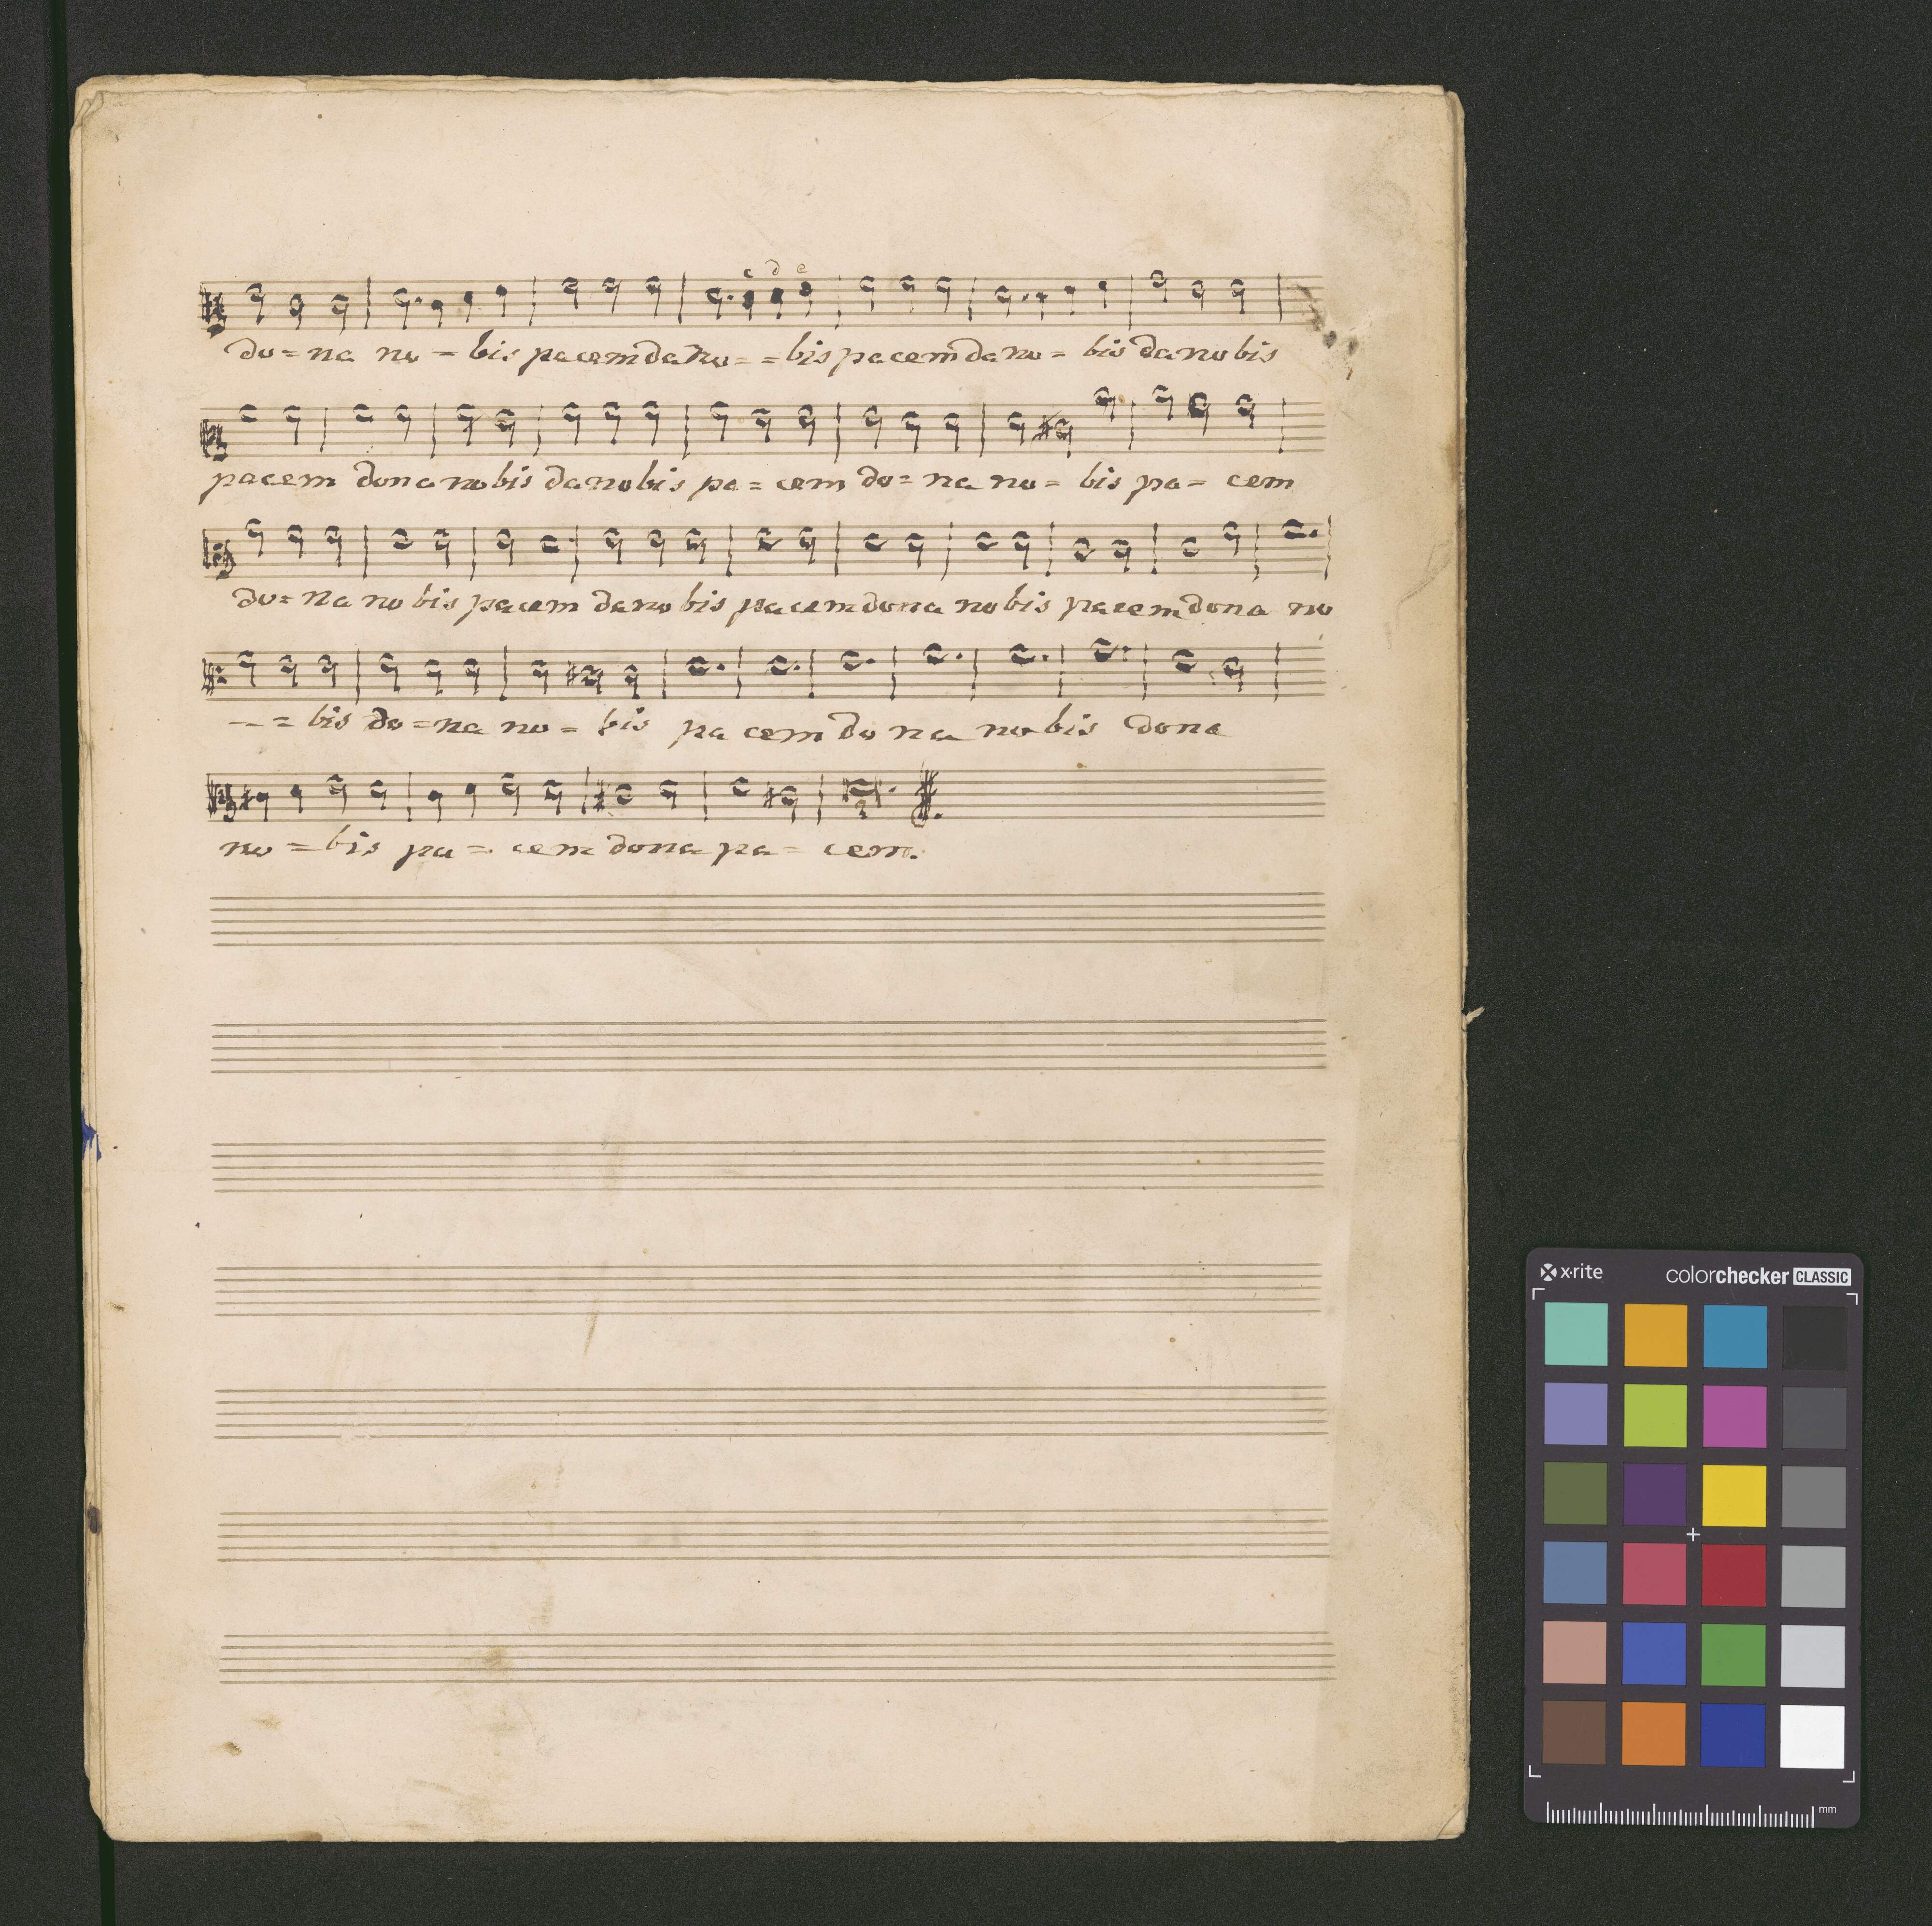 c d e
do = na no = bis pacem da no = = bis pacem da no = bis da nobis
pacem dona nobis da nobis pa = cem do = na no = bis pa = cem
do = na nobis pacem da nobis pacem dona nobis pacem dona no
-- = bis do = na no = bis pacem dona nobis dona
no = bis pa = cem dona pa = cem.
x·rite colorchecker CLASSIC
mm